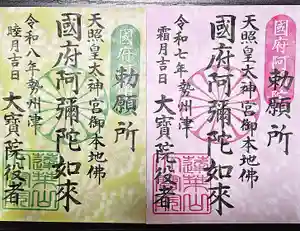 勅願所
國府阿
天照皇太神宮御本地佛
國府阿彌陀如來
令和七年勢州津
霜月吉日
大寶院役者
蓮華山
勅願所
國府
天照皇太神宮御本地佛
國府阿彌陀如來
令和八年勢州津
睦月吉日
大寶院役者
蓮華山